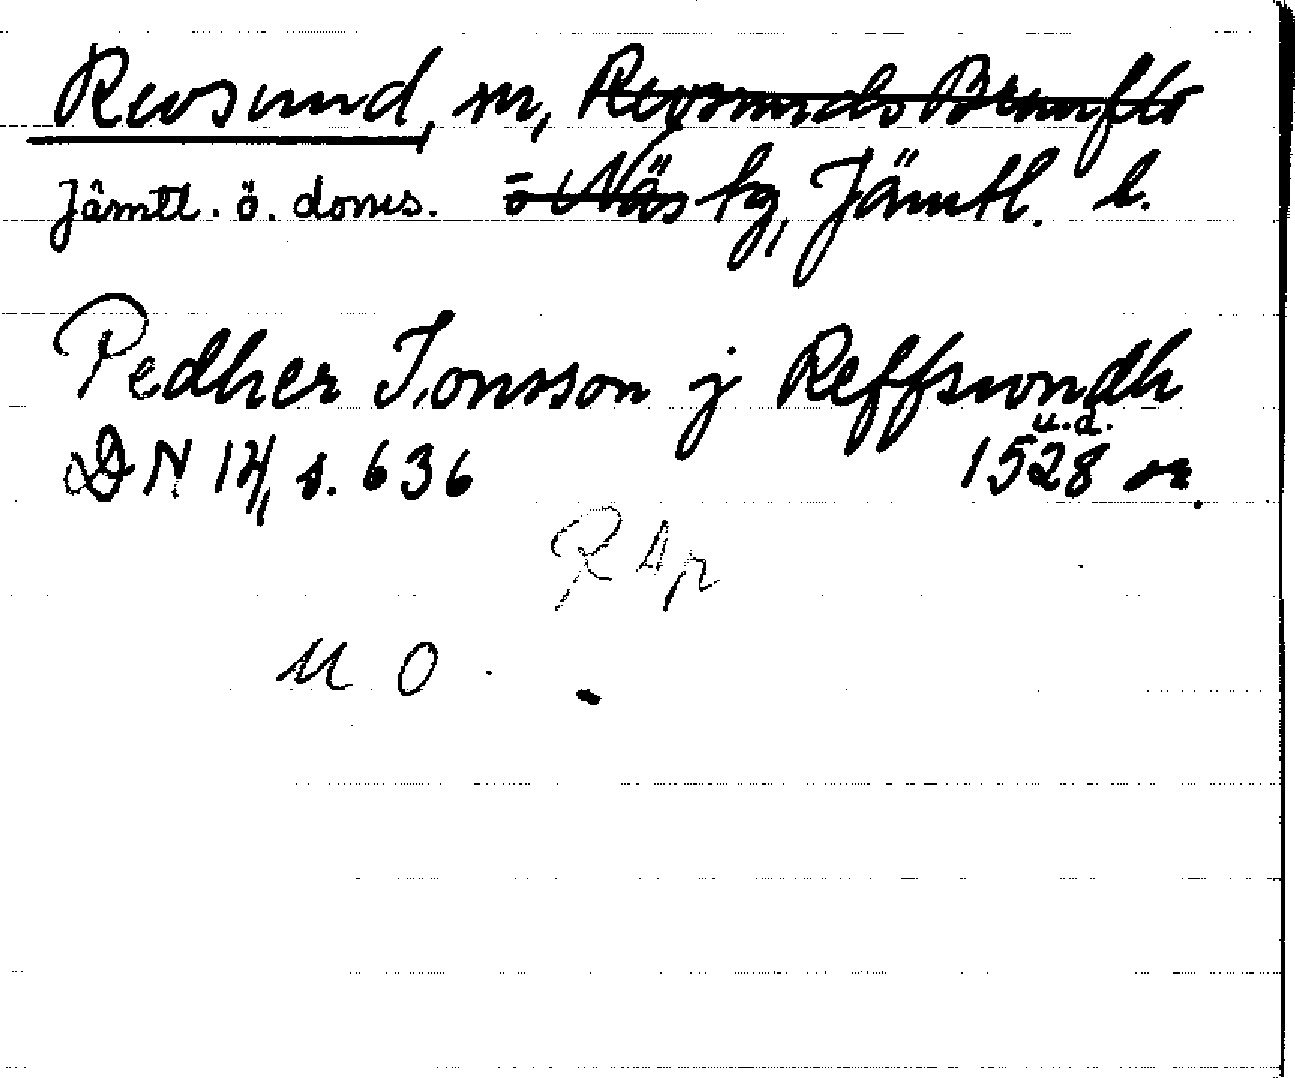 Revsund, sn, Revsunds Brunflo
Jämtl. ö. doms. o Näs tg, Jämtl. l.
Pedher Jonsson j Reffswndh
u.a.
DN 14, s. 636 1528 or.
RAp
U O.